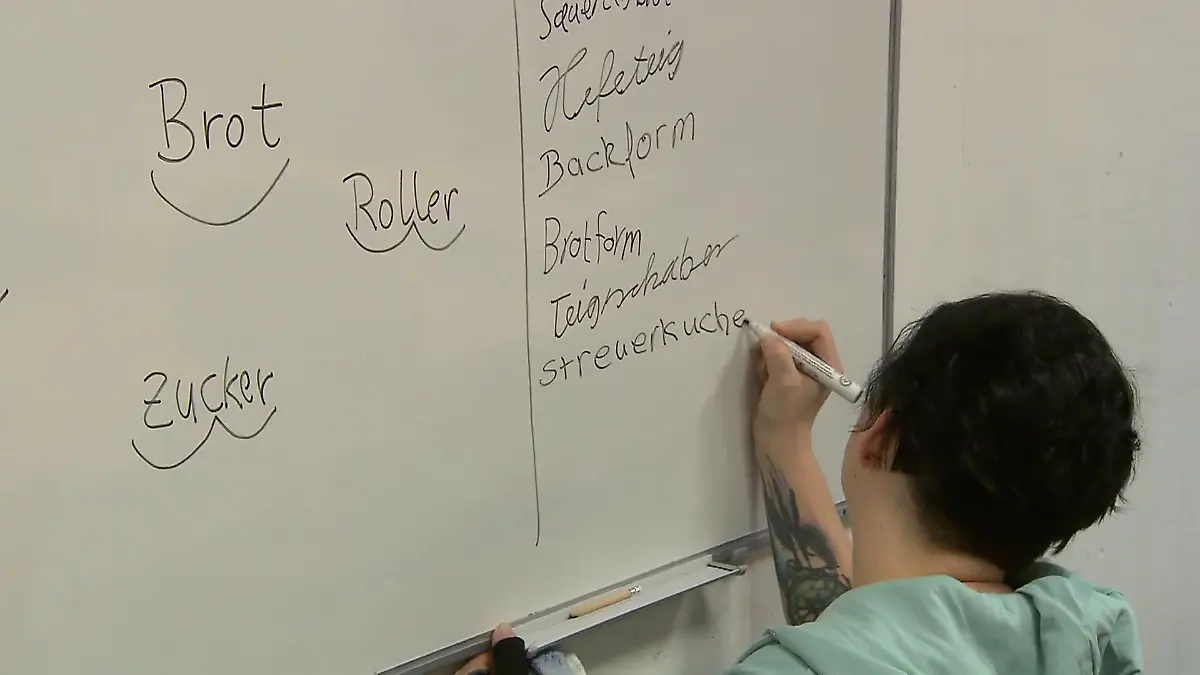 Brot
Roller
Zucker
Hefeteig
Backform
Brotform
Teigschaber
streuerkuche